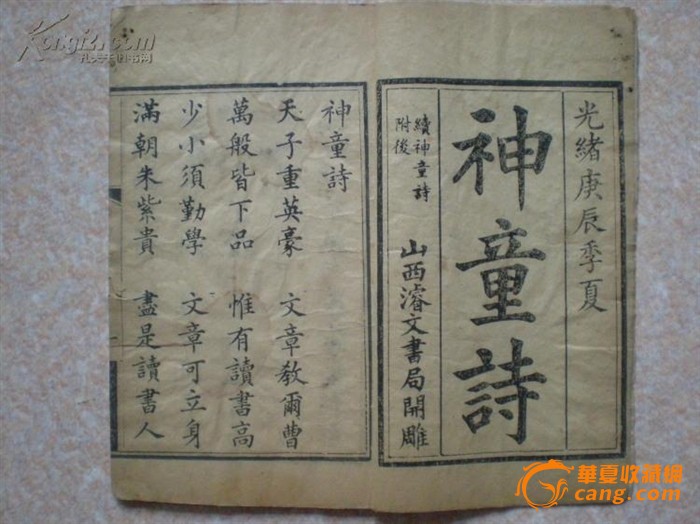 光緒庚辰季夏
神童詩
續神童詩
附後
山西濬文書局開雕
神童詩
天子重英豪 文章教爾曹
萬般皆下品 惟有讀書高
少小須勤學 文章可立身
滿朝朱紫貴 盡是讀書人
Kongfz.com
孔夫子旧书网
華夏收藏網
cang.com